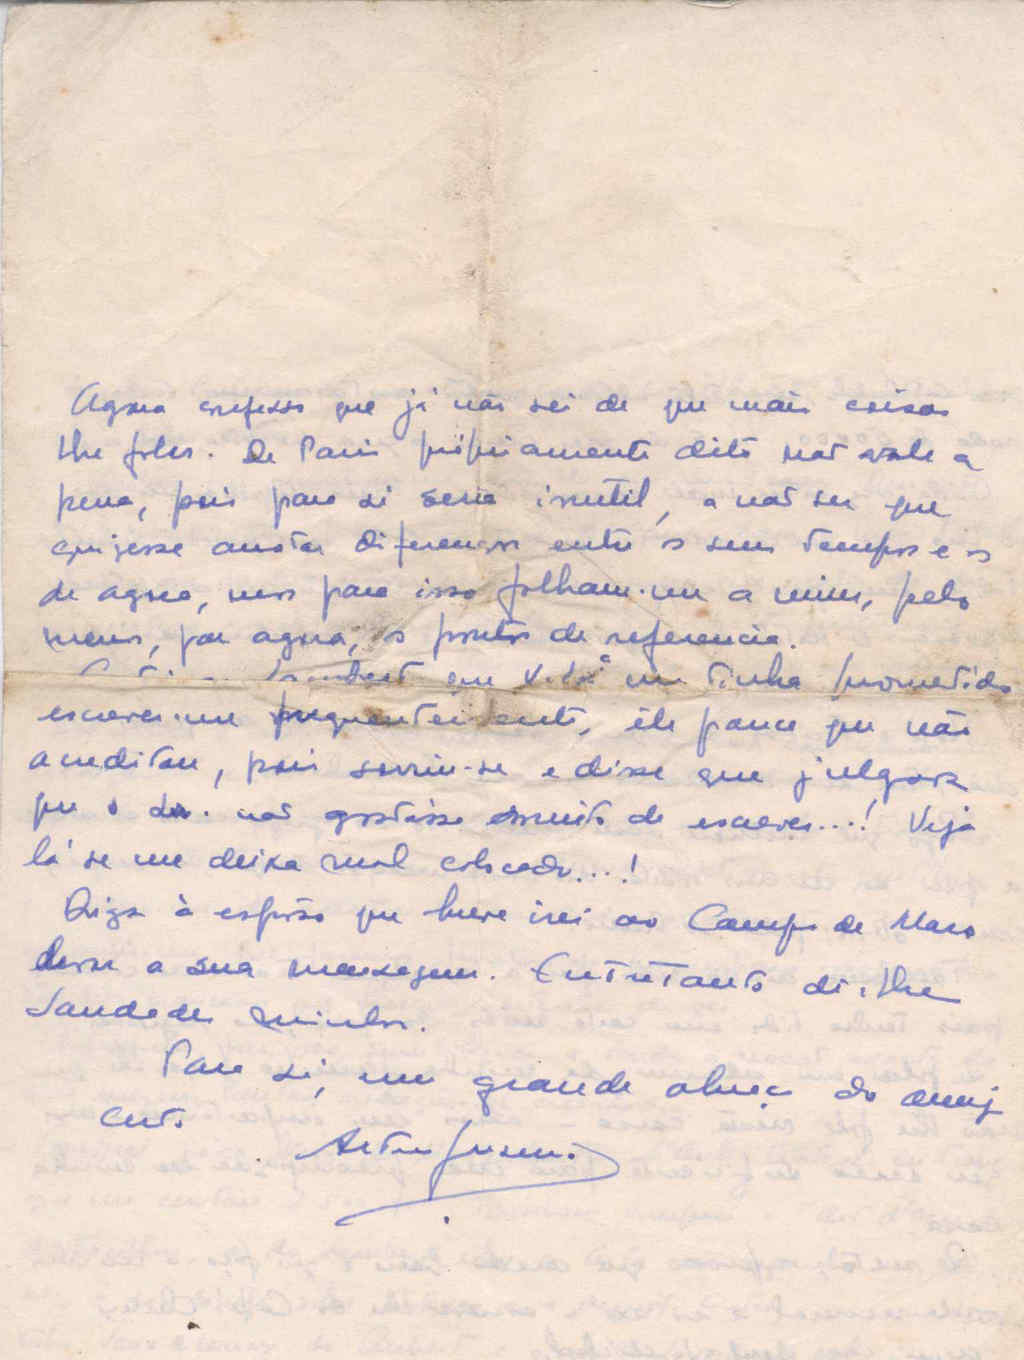 Agora confesso que já não sei de que mais coisas
lhe falar. De Paris propriamente dito não vale a
pena, pois para si seria inutil, a não ser que
quizesse anotar diferenças entre os seus tempos e os
de agora, mas para isso falham-me a mim, pelo
menos, por agora, os pontos de referencia.
que me tinha prometido
escrever-me frequentemente, êle parece que não
acreditou, pois sorriu-se e disse que julgava
que o Dr. não gostasse muito de escrever...! Veja
lá se me deixa mal colocado...!
Diga à esposa que breve irei ao Campo de Mars
dar a sua mensagem. Entretanto dê-lhe
Saudades minhas.
Para si, um grande abraço do amigo
certo
Artur